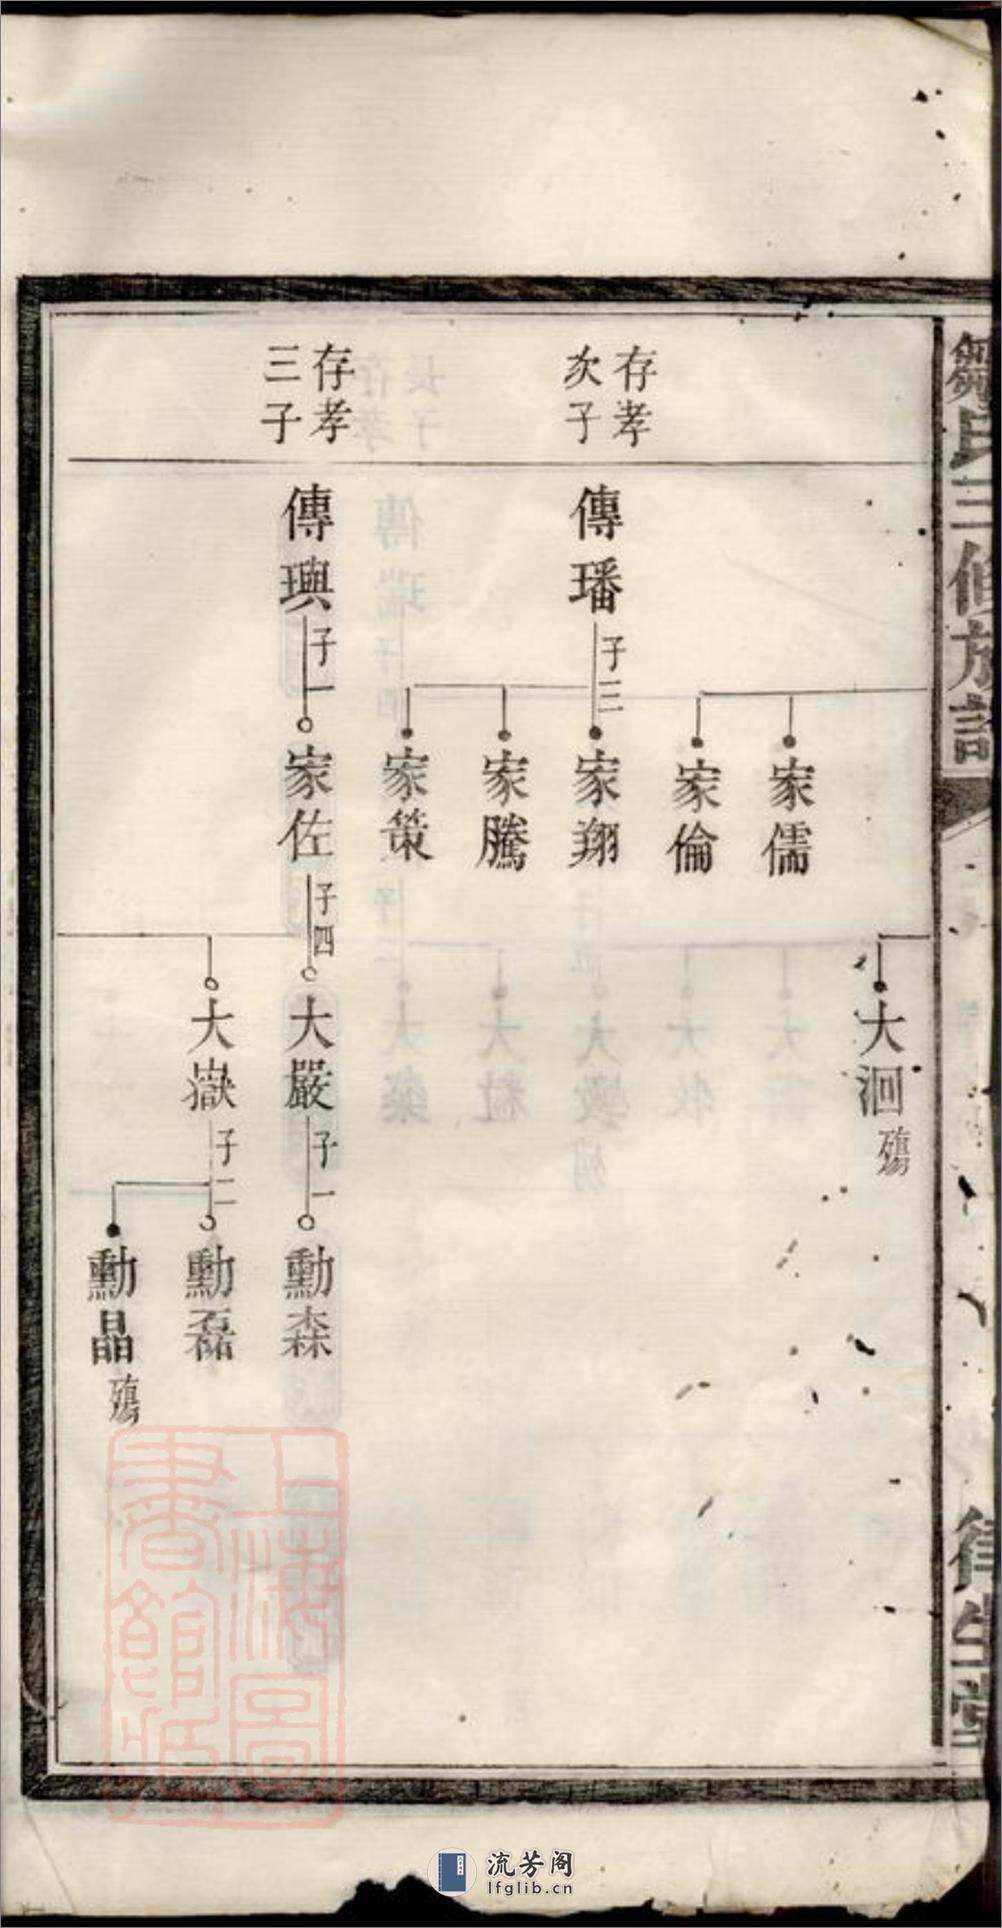 鄒氏三修族譜
家儒
家倫
大洄
殤
存孝
次子
傳璠
子三
家翔
家騰
家策
存孝
三子
傳璵
子一
家佐
子四
大嚴
子一
勳森
大嶽
子二
勳磊
勳晶
殤
上海圖
書館藏
流芳阁
lfglib.cn